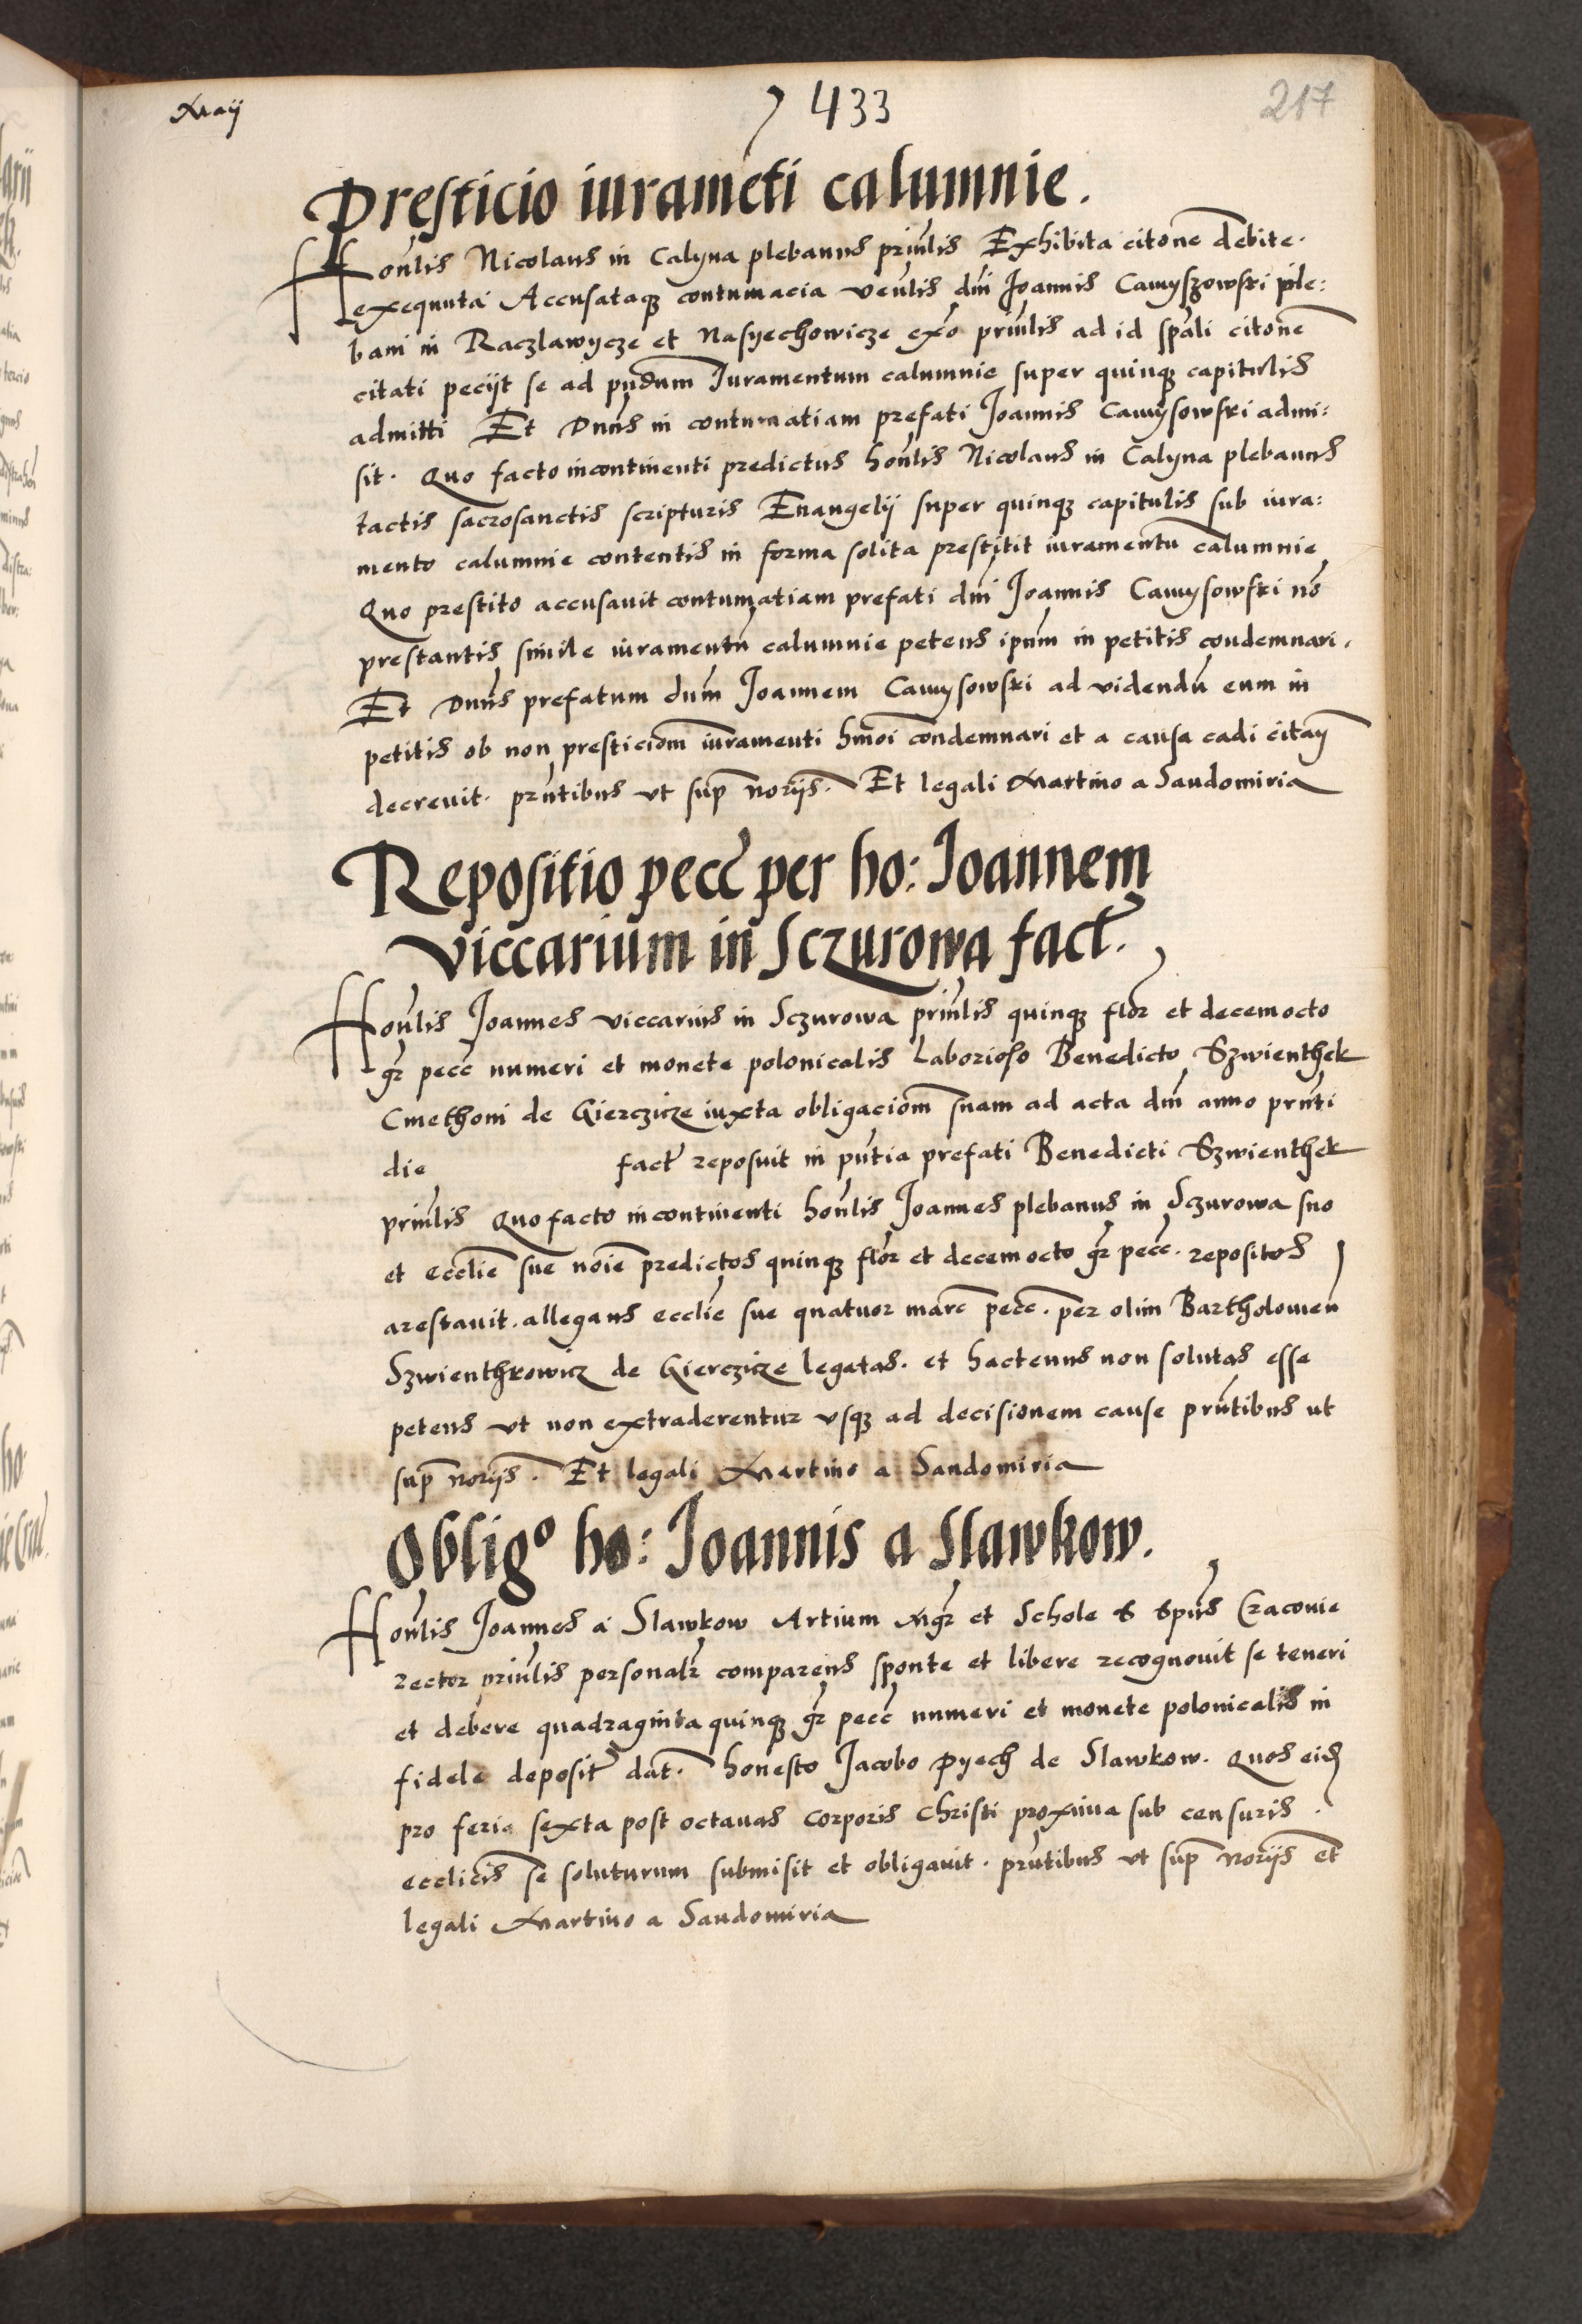 Maij
433
217
Presticio iuramēti calumnie.
Honlis Nicolaus in Calyna plebanus prinlis Exhibita citone debite
exequuta Accusataq contumacia venlis dni Joannis Camyszowski ple:
bani in Raczlawycze et Nasyechowicze exo prinlis ad id spali citone
citati pecijt se ad pndum Juramentum calumnie super quinq capitulis
admitti Et Dnus in contumatiam prefati Joannis Camysowski admi:
sit. Quo facto incontinenti predictus honlis Nicolaus in Calyna plebanus
tactis sacrosanctis scripturis Euangelij super quinq capitulis sub iura:
mento calumnie contentis in forma solita prestitit iuramentu calumnie
Quo prestito accusauit contumatiam prefati dni Joannis Camysowski no
prestantis simile iuramentu calumnie petens ipum in petitis condemnari.
Et Dnus prefatum dum Joannem Camysowski ad videndu eum in
petitis ob non presticiom iuramenti hmoi condemnari et a causa cadi citay
decreuit. prntibus vt sup norijs. Et legali Martino a Sandomiria
Repositio pecc per ho: Joannem
viccarium in Sczurowa fact.
Honlis Joannes viccarius in Sczurowa prinlis quinq flor et decemocto
gr pecc numeri et monete polonicalis Laborioso Benedicto Szwienthek
Cmethoni de Gierczicze iuxta obligaciom suam ad acta dm anno prnti
die fact reposuit in pntia prefati Benedicti Szwienthek
prinlis Quo facto incontinenti honlis Joannes plebanus in Sczurowa suo
et ecclie sue noie predictos quinq flor et decemocto gr pecc. repositos
arestauit. allegans ecclie sue quatuor marc pecc. per olim Bartholomeu
Szwienthkowicz de Gierczicze legatas. et hactenus non solutas esse
petens vt non extraderentur vsq ad decisionem cause prntibus ut
sup norijs. Et legali Martino a Sandomiria
Obligo ho: Joannis a Slawkow.
Honlis Joannes a Slawkow Artium Mgr et Schole S Spus Cracouie
rector prinlis personalr comparens sponte et libere recognouit se teneri
et debere quadraginta quinq gr pecc numeri et monete polonicalis in
fidele deposit dat. honesto Jacobo Pyech de Slawkow. Quos eid
pro feria sexta post octauas corporis christi proxima sub censuris
ecclicis se soluturum submisit et obligauit. prntibus vt sup norijs et
legali Martino a Sandomiria